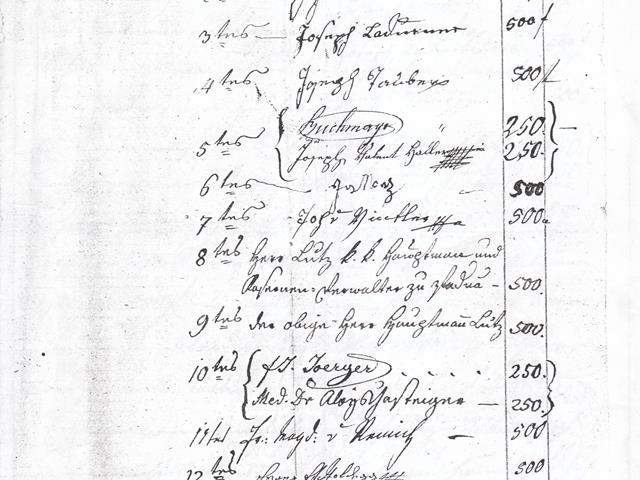 3tes Joseph Ladurner 500 f
4tes Joseph Tauber 500 f
5tes Buchmayr " 250.
Joseph Valent Haller 250.
6tes 500
7tes Joh v Vintler 500.
8tes Herr Lutz k. k. Hauptman und
Kasernen-Verwalter zu Padua - 500.
9tes der obige Herr Hauptmañ Lutz 500.
10tes f. J. Joerger . . . . 250.
Med. Dr Aloys Gasteiger — 250.
11tes v — 500
12tes 500